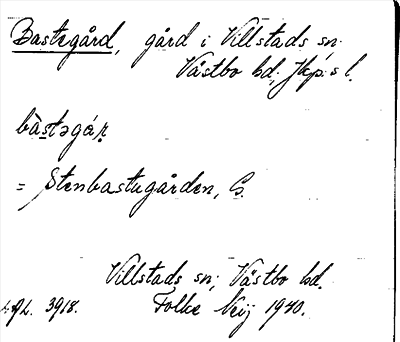 Bastegård, gård i Villstads sn;
Västbo hd; Jkp:s l.
bàstəgáṛ
= Stenbastugården, G.
Villstads sn; Västbo hd.
3918. Folke Neij 1940.